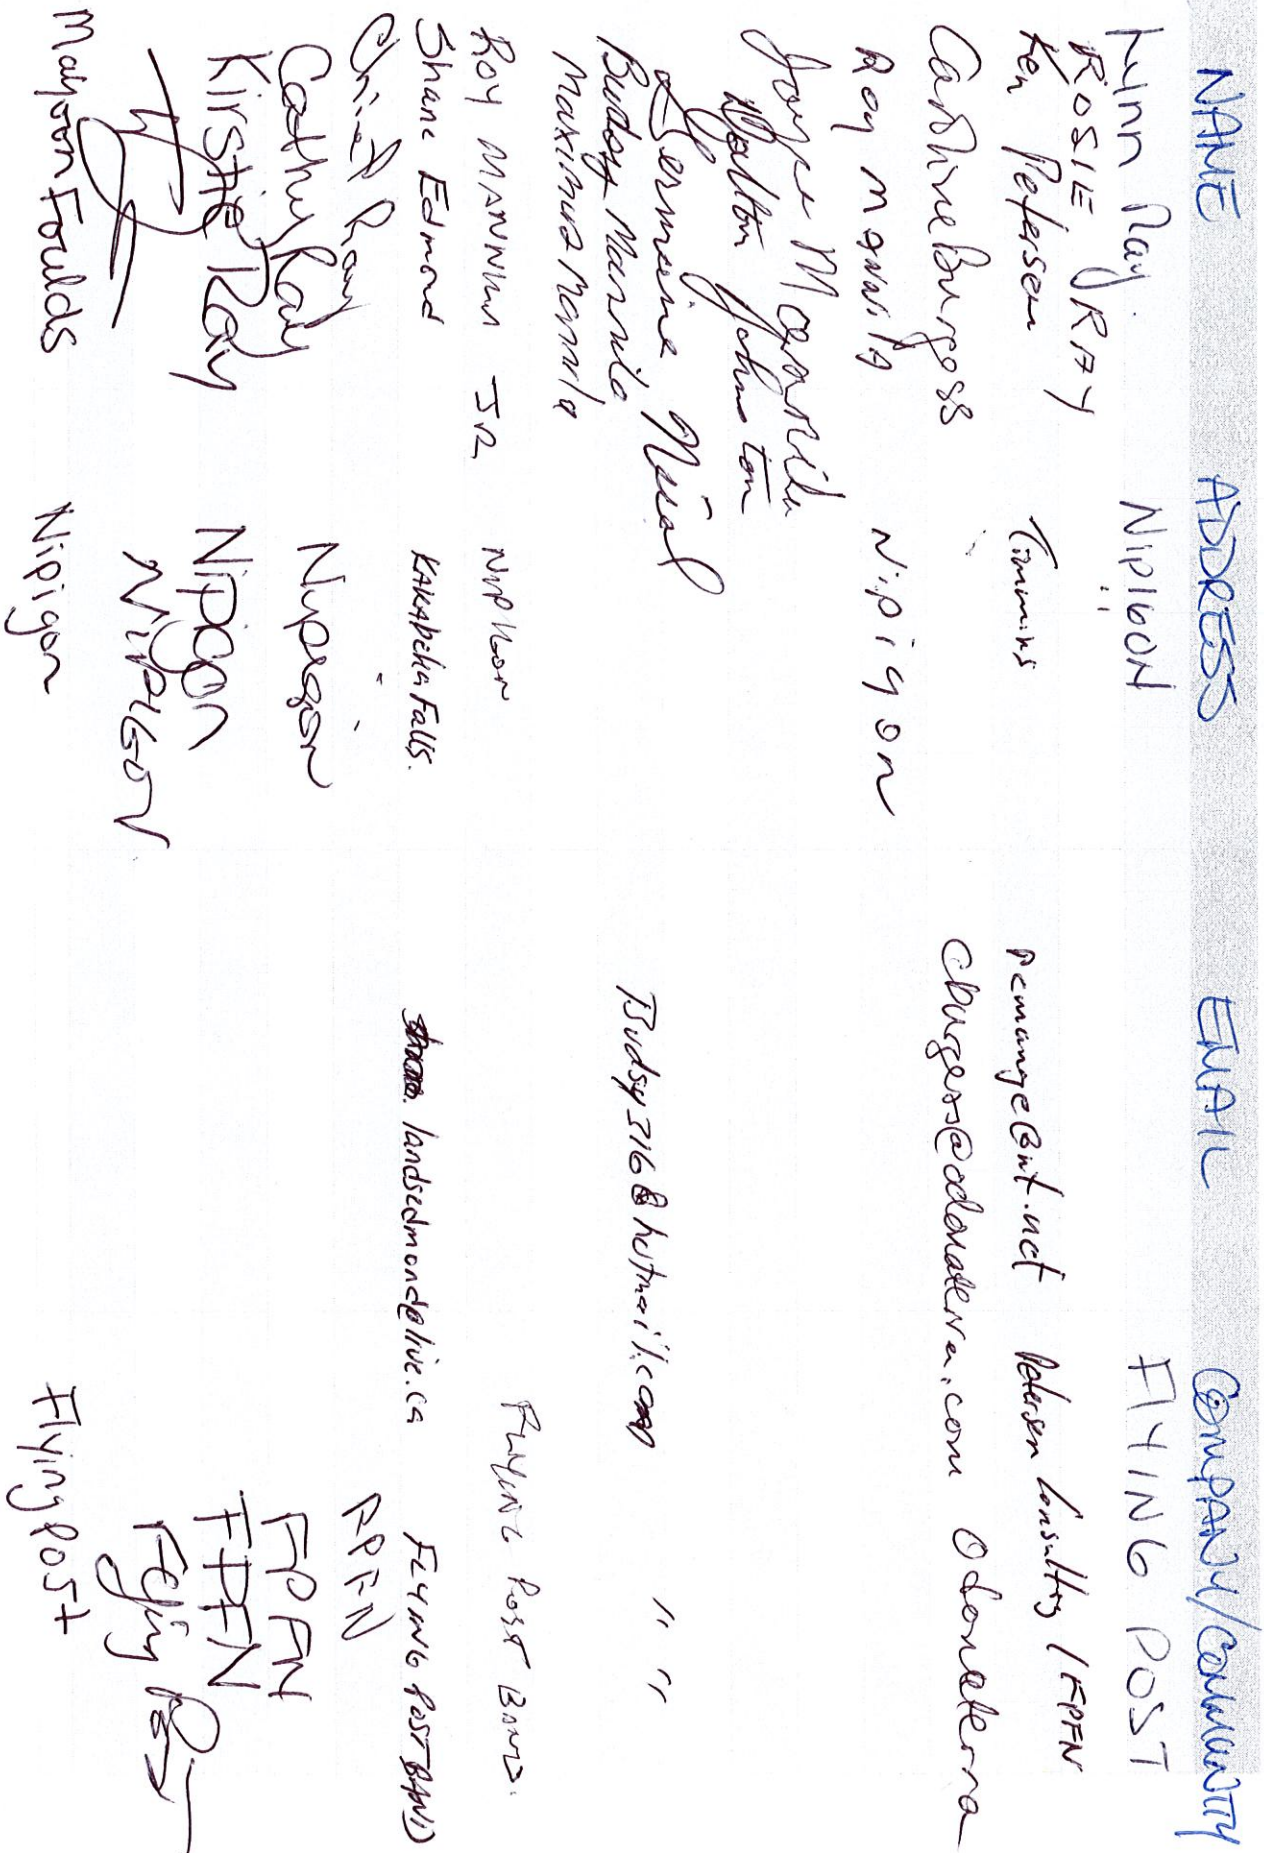 NAME ADDRESS EMAIL COMPANY/COMMUNITY
Lynn Ray. NIPIGON FLYING POST
ROSIE RAY "
Ken Petersen Timmins pcmange@nt.net Petersen Consulting / FPFN
Caroline Burgess cburgess@odonaterra.com Odonaterra
Roy Mannila Nipigon
Joyce Mannila
Walton Johnston
Germaine
Budsy Mannila Budsy316@hotmail.com " "
Maxima Mannila
ROY MANNILA JR NIPIGON FLYING POST BAND.
Shane Edmond KAKABEKA Falls. landsedmond@live.ca FLYING POST BAND
Ray " FPFN
Cathy Ray Nipigon FPFN
Kirstie Ray Nipigon FPFN
NIPIGON Flying Post
Foulds Nipigon Flying Post